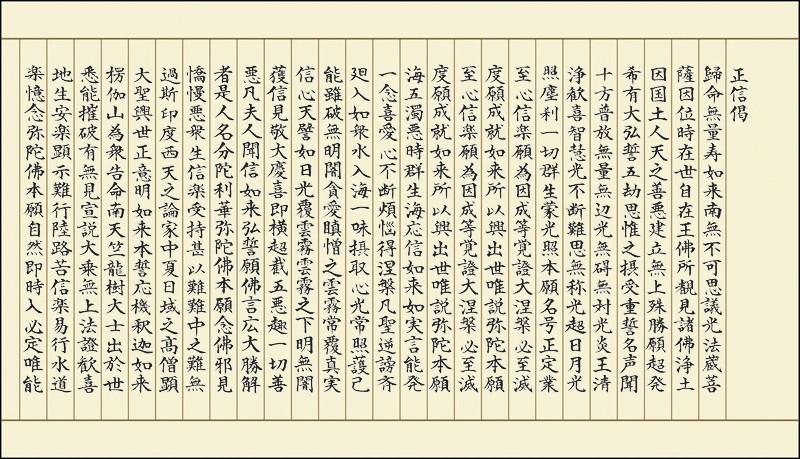 正信偈
歸命無量寿如来南無不可思議光法蔵菩
薩因位時在世自在王佛所覩見諸佛浄土
因国土人天之善悪建立無上殊勝願超発
希有大弘誓五劫思惟之摂受重誓名声聞
十方普放無量無辺光無碍無対光炎王清
浄歓喜智慧光不断難思無称光超日月光
照塵利一切群生蒙光照本願名号正定業
至心信楽願為因成等覚證大涅槃必至滅
度願成就如来所以興出世唯説弥陀本願
至心信楽願為因成等覚證大涅槃必至滅
度願成就如来所以興出世唯説弥陀本願
海五濁悪時群生海応信如来如実言能発
一念喜愛心不断煩悩得涅槃凡聖逆謗斉
廻入如衆水入海一味摂取心光常照護已
能雖破無明闇貪愛瞋憎之雲霧常覆真実
信心天譬如日光覆雲霧雲霧之下明無闇
獲信見敬大慶喜即横超截五悪趣一切善
悪凡夫人聞信如来弘誓願佛言広大勝解
者是人名分陀利華弥陀佛本願念佛邪見
憍慢悪衆生信楽受持甚以難難中之難無
過斯印度西天之論家中夏日域之高僧顕
大聖興世正意明如来本誓応機釈迦如来
楞伽山為衆告命南天竺龍樹大士出於世
悉能摧破有無見宣説大乗無上法證歓喜
地生安楽顕示難行陸路苦信楽易行水道
楽憶念弥陀佛本願自然即時入必定唯能